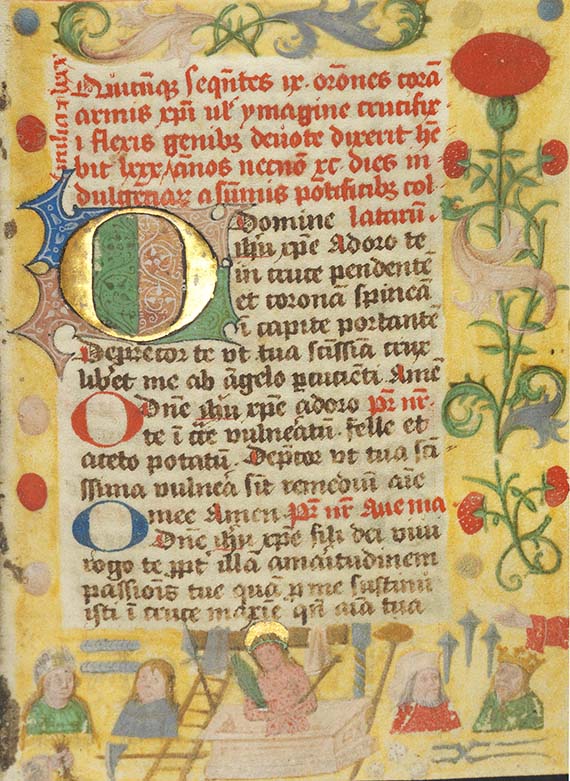 Quicunq; seqntes ix. orones corā
armis xpi ul' ymagine crucifix
i flexis genibz deuote dixerit hē
bit lxxx annos necnō xc dies in
dulgenciaꝝ a sūmis pōtificibz col
latarū.
O Domine
ihu xpe Adoro te
in cruce pendentē
et coronā spineā
ī capite portantē
Deprecor te vt tua scissīa crux
liberet me ab āgelo pcucienti. Amē
O Dnē ihu xpe adoro pr nr.
te ī cce vulneatū. felle et
aceto potatū. Depcor vt tua sci
ssima vulnea sīt remediū aīe
mee Amen. pr nr Aue ma
O Dnē ihu xpe fili dei viui
rogo te ppt illā amaitudinem
passionis tue quā p me sustinu
isti ī cruce maxīe qn aīa tua